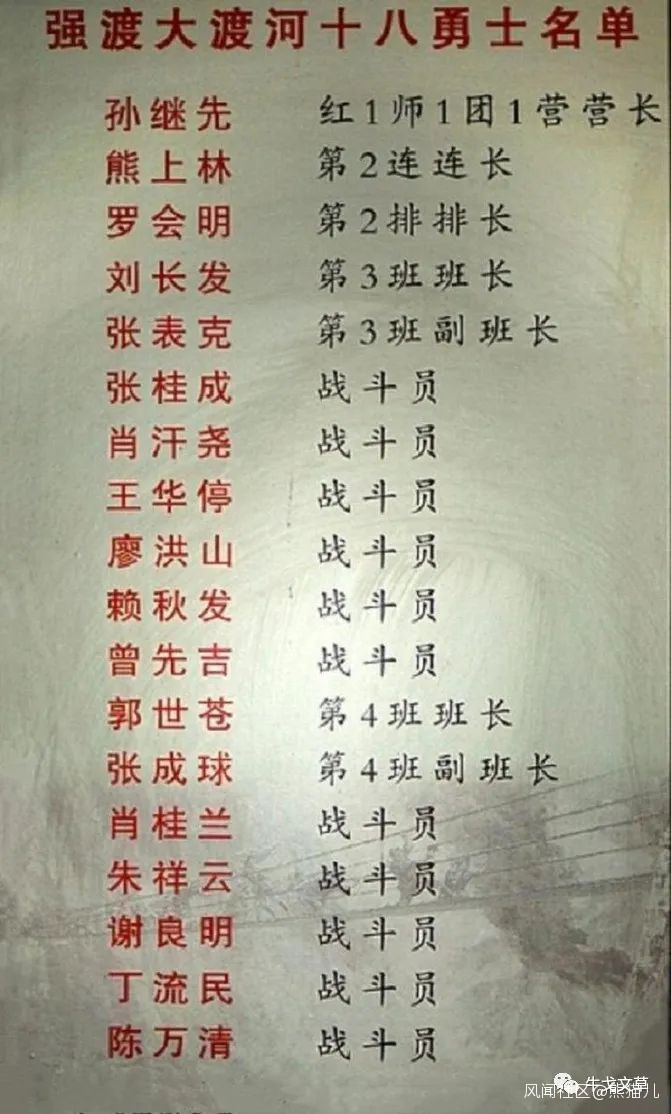 强渡大渡河十八勇士名单
孙继先 红1师1团1营营长
熊上林 第2连连长
罗会明 第2排排长
刘长发 第3班班长
张表克 第3班副班长
张桂成 战斗员
肖汗尧 战斗员
王华停 战斗员
廖洪山 战斗员
赖秋发 战斗员
曾先吉 战斗员
郭世苍 第4班班长
张成球 第4班副班长
肖桂兰 战斗员
朱祥云 战斗员
谢良明 战斗员
丁流民 战斗员
陈万清 战斗员
牛戈文草
风闻社区@熊猫儿